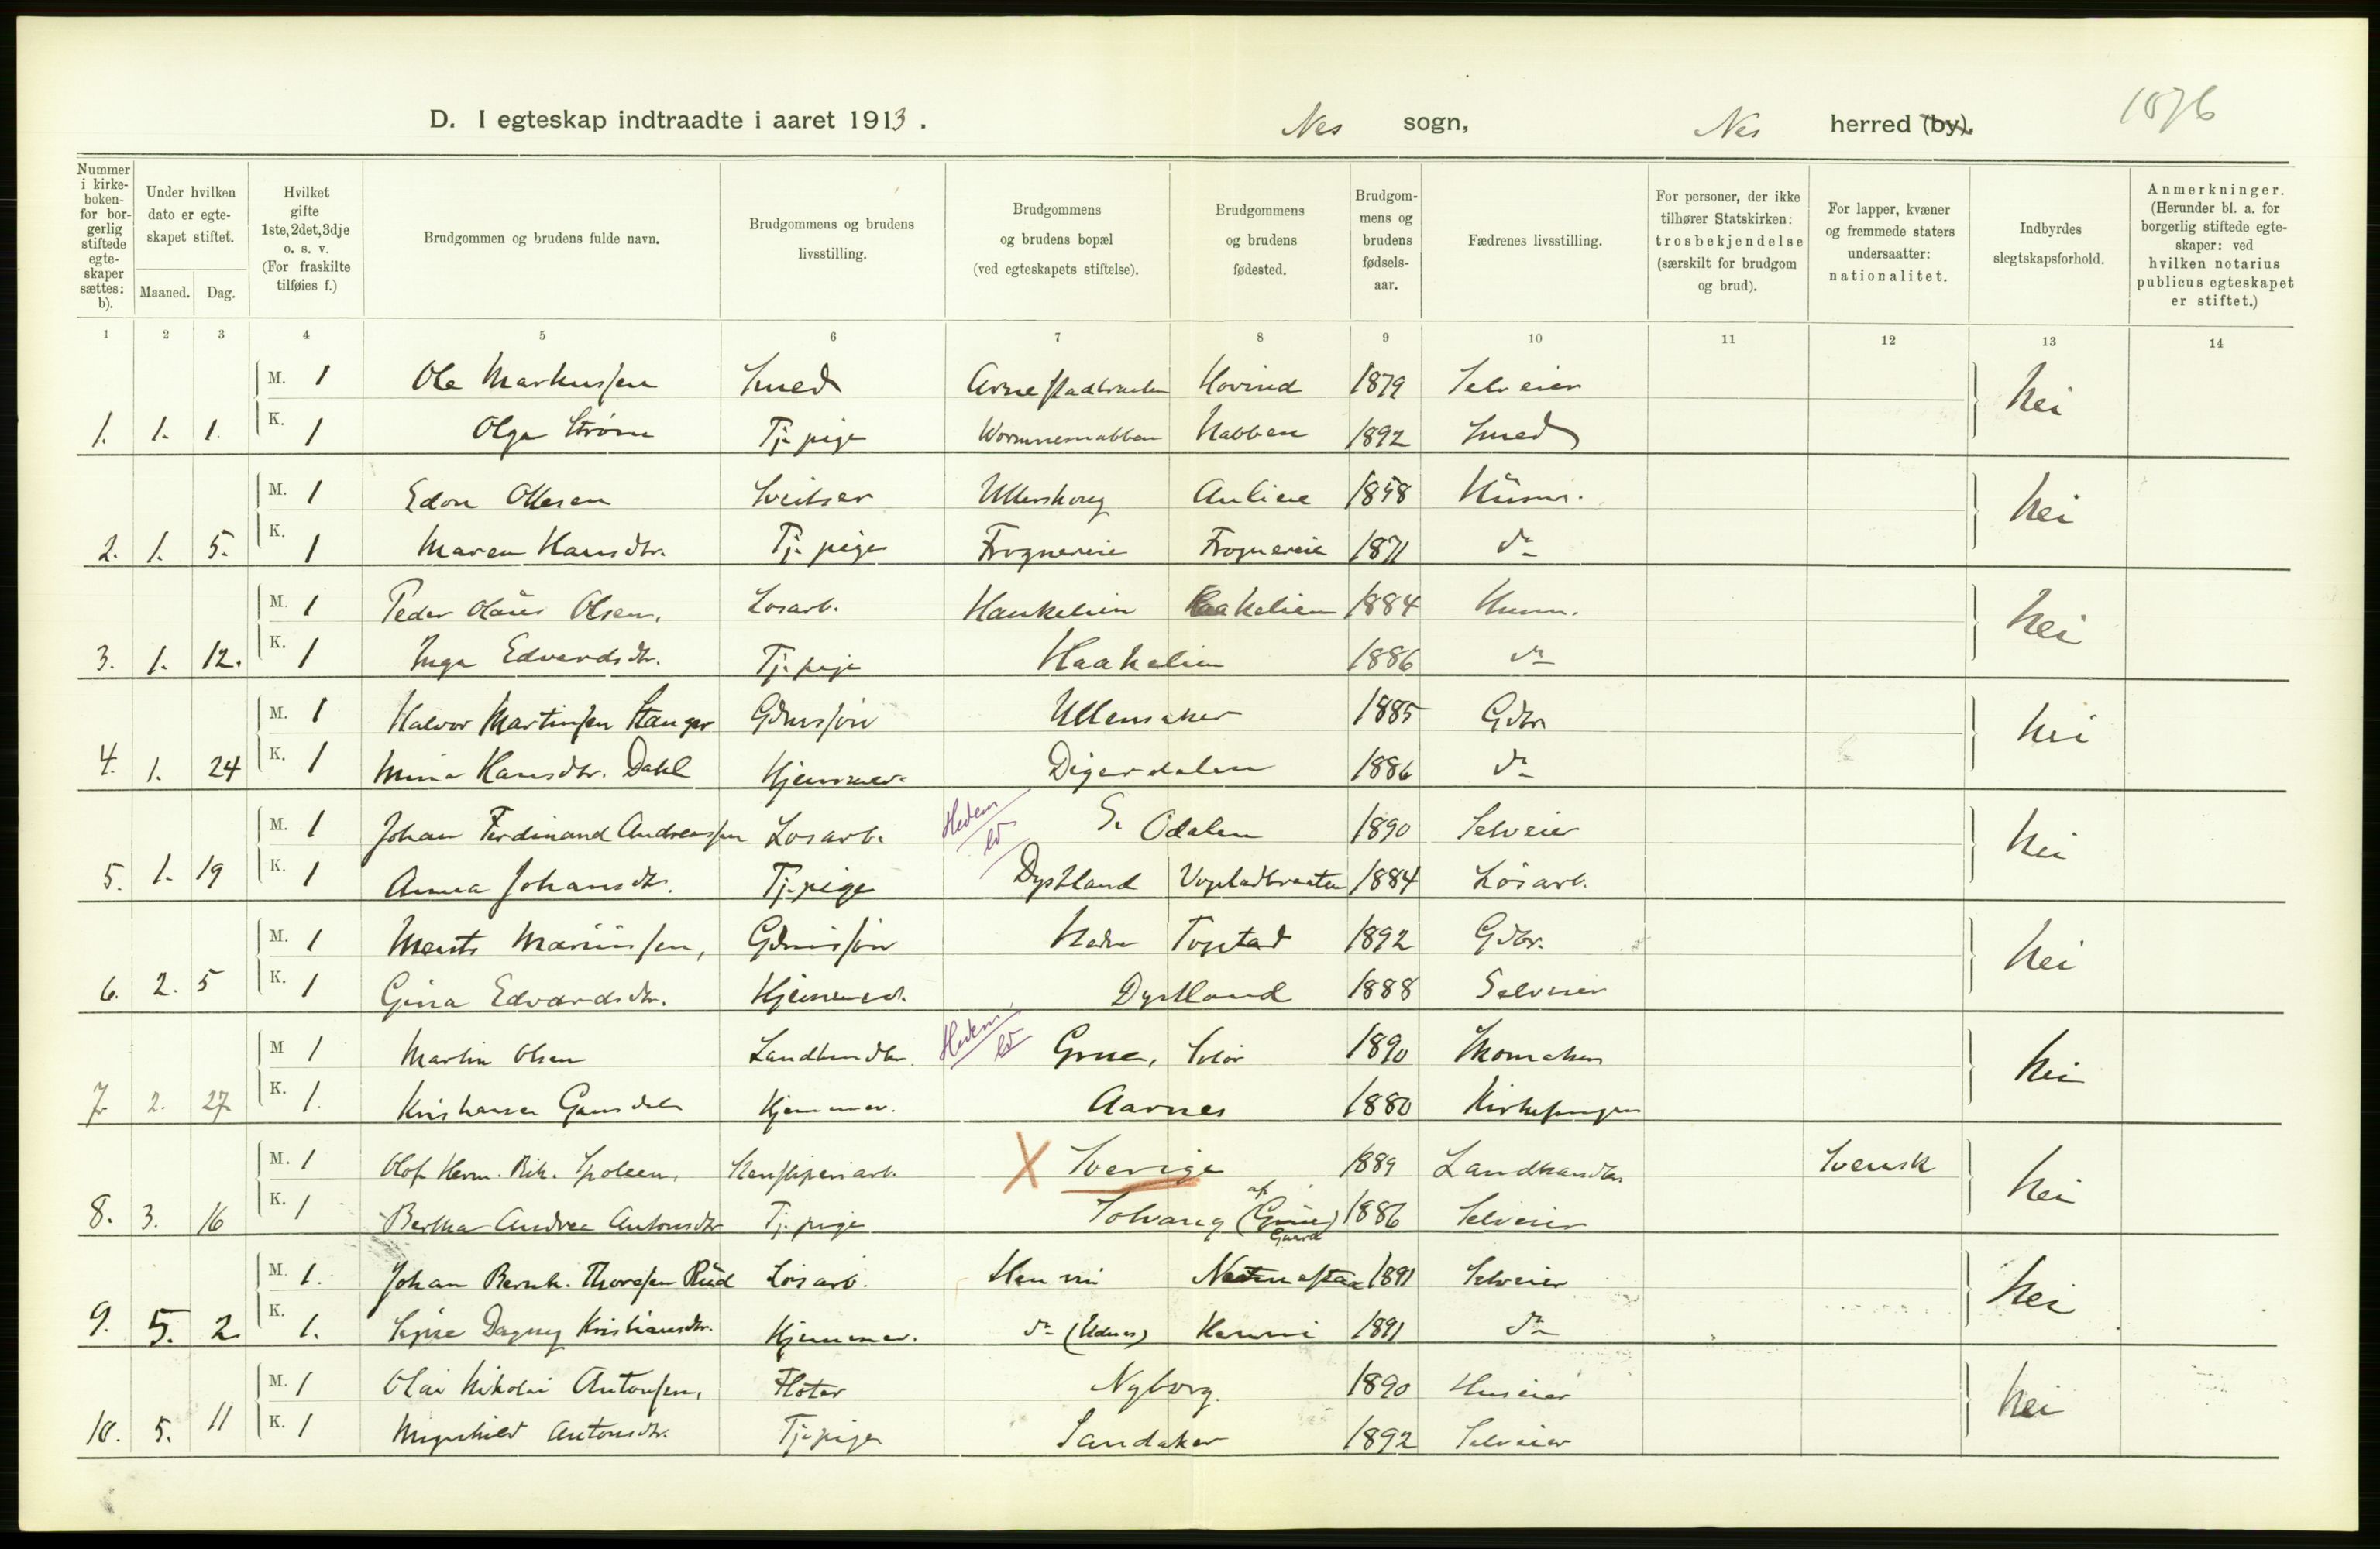 1076
D. I egteskap indtraadte i aaret 1913. Nes sogn, Nes herred (by).
Nummer i kirke-boken- for bor-gerlig stiftede egte-skaper sættes: b).
Under hvilken dato er egte-skapet stiftet.
Maaned. Dag.
Hvilket gifte 1ste, 2det, 3dje o. s. v. (For fraskilte tilføies f.)
Brudgommen og brudens fulde navn.
Brudgommens og brudens livsstilling.
Brudgommens og brudens bopæl (ved egteskapets stiftelse).
Brudgommens og brudens fødested.
Brudgom-mens og brudens fødsels-aar.
Fædrenes livsstilling.
For personer, der ikke tilhører Statskirken: trosbekjendelse (særskilt for brudgom og brud).
For lapper, kvæner og fremmede staters undersaatter: nationalitet.
Indbyrdes slegtskapsforhold.
Anmerkninger. (Herunder bl. a. for borgerlig stiftede egte-skaper: ved hvilken notarius publicus egteskapet er stiftet.)
1 2 3 4 5 6 7 8 9 10 11 12 13 14
M. 1 Ole Markussen Smed Hovind 1879 Selveier Nei
1. 1. 1. K. 1 Olga Strøm Tj. pige Wormnesnabben Nabben 1892 Smed
M. 1 Edon Ottesen Sveitser Ullershoug Aulien 1858 Husm. Nei
2. 1. 5. K. 1 Maren Hansdtr. Tj. pige Frognereie Frognereie 1871 do
M. 1 Peder Olaus Olsen, Losarb. Haukelien Haakelien 1884 Husm. Nei
3. 1. 12. K. 1 Inga Edvardsdtr. Tj. pige Haakelien 1886 do
M. 1 Halvor Martinsen Stanger Gdmssøn Ullensaker 1885 Gdbr. Nei
4. 1. 24 K. 1 Mina Hansdtr. Dahl Hjemmev. Digerdalen 1886 do
M. 1 Johan Ferdinand Andreassen Losarb. Hedem. S. Odalen 1890 Selveier Nei
5. 1. 19 K. 1 Anna Johansdtr. Tj. pige Dystland 1884 Løsarb.
M. 1 Mariussen, Gdmssøn Nedre Togstad 1892 Gdbr. Nei
6. 2. 5 K. 1 Gina Edvardsdtr. Hjemmev. Dystland 1888 Selveier
M 1 Martin Olsen Landhandler Hedem. Grue, Solør 1890 Skomaker Nei
7. 2. 27. K. 1. Hjemmev. Aarnes 1880 Kirkesanger
M. 1 Olof Herm. Sliperiarb. X Sverige 1889 Landhandler Svensk Nei
8. 3. 16 K. 1 Berthe Andrea Antonsdtr Tj. pige Solvang 1886 Selveier
M. 1. Johan Bernh. Thoresen Rud Løsarb. Henni 1891 Selveier Nei
9. 5. 2. K. 1. Signe Dagny Kristiansdtr. Hjemmev. do (Udnes) Henni 1891 do
M. 1 Olai Nikolai Antonsen, Fløter Nyborg. 1890 Huseier Nei
10. 5. 11 K. 1 Antonsdtr. Tj. pige Sandaker 1892 Selveier